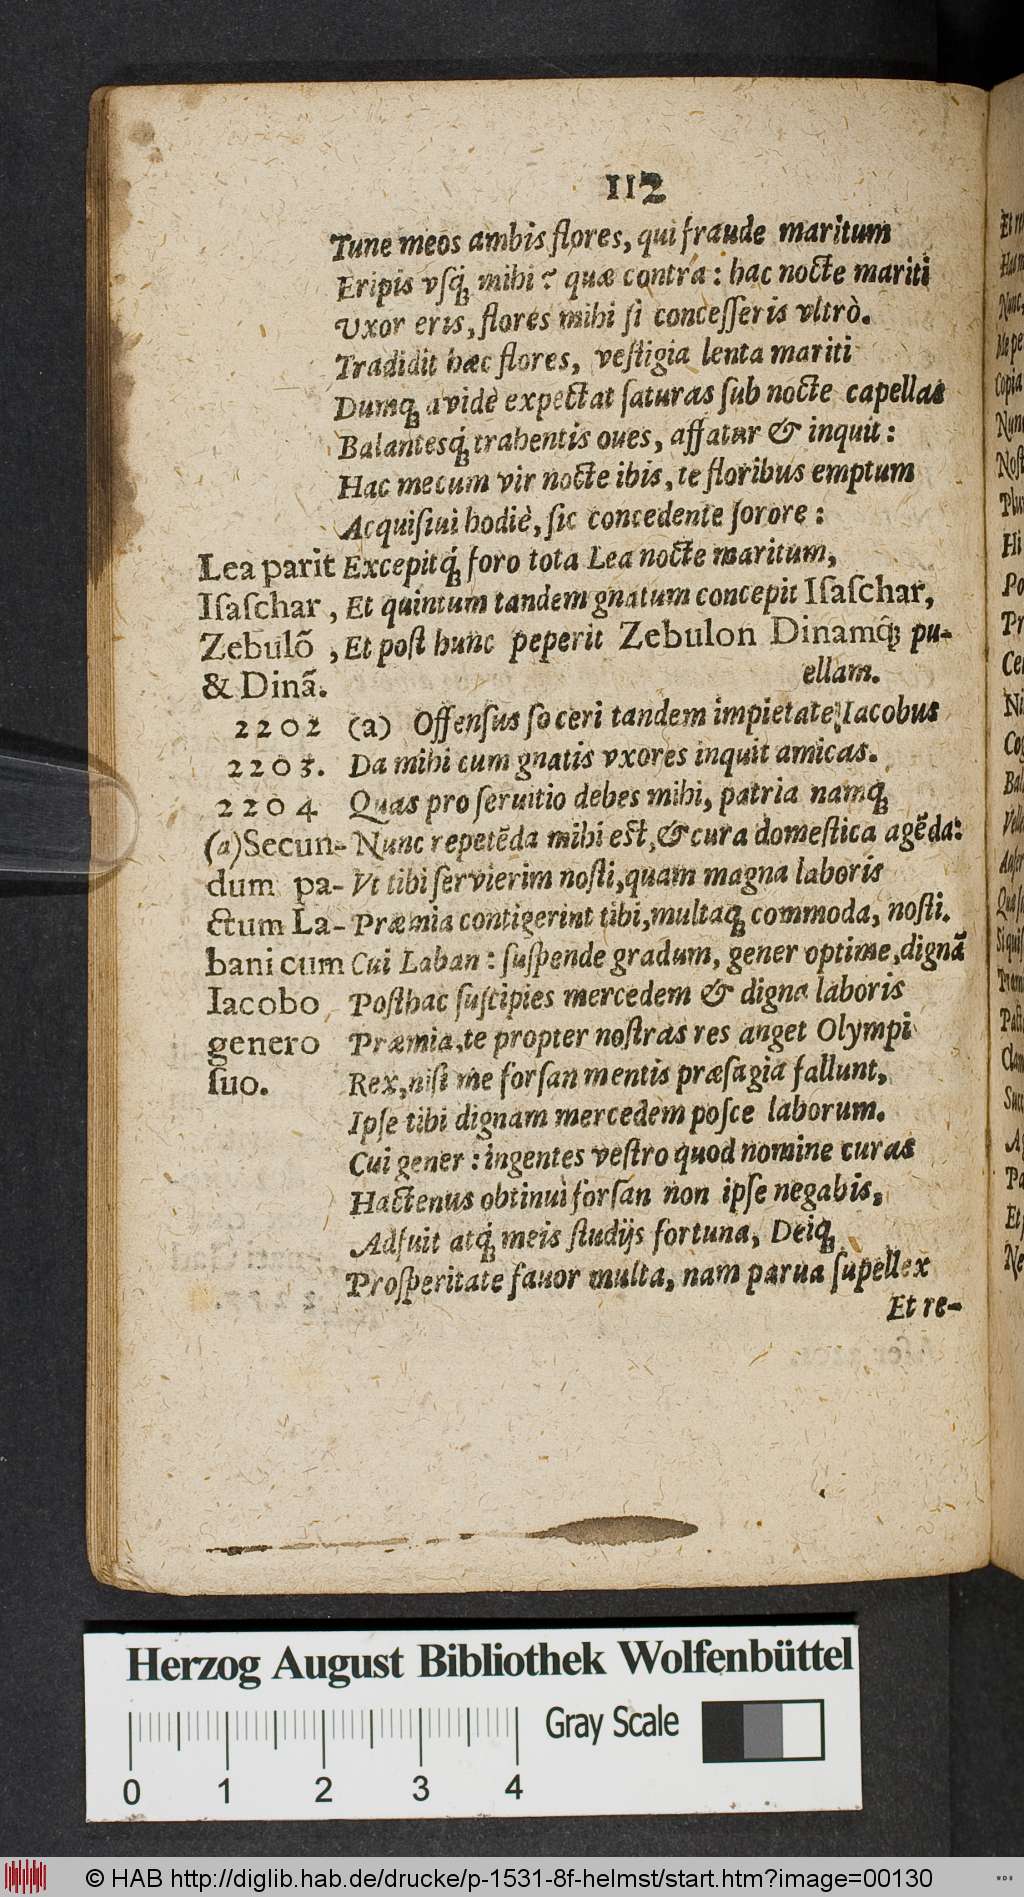 112
Tune meos ambis flores, qui fraude maritum
Eripis vſq́; mihi? quæ contra: hac nocte mariti
Vxor eris, flores mihi ſi conceſſeris vltrò.
Tradidit hæc flores, veſtigia lenta mariti
Dumq; avidè expectat ſaturas ſub nocte capellas
Balantesq́; trahentis oues, affatur & inquit:
Hac mecum vir nocte ibis, te floribus emptum
Acquiſiui hodiè, ſic concedente ſorore:
Lea parit
Excepitq́; foro tota Lea nocte maritum,
Iſaſchar,
Et quintum tandem gnatum concepit Iſaſchar,
Zebulõ,
Et poſt hunc peperit Zebulon Dinamq́; pu-
ellam.
& Dinã.
2202
(a) Offenſus ſoceri tandem impietate Iacobus
2203.
Da mihi cum gnatis vxores inquit amicas.
2204
Quas pro ſeruitio debes mihi, patria namq;
(a) Secun-
Nunc repetẽda mihi eſt, & cura domeſtica agẽda:
dum pa-
Vt tibi ſervierim noſti, quam magna laboris
ctum La-
Præmia contigerint tibi, multaq; commoda, noſti.
bani cum
Cui Laban: ſuſpende gradum, gener optime, dignã
Iacobo
Poſthac ſuſcipies mercedem & digna laboris
genero
Præmia, te propter noſtras res anget Olympi
ſuo.
Rex, niſi me forſan mentis præſagia fallunt,
Ipſe tibi dignam mercedem poſce laborum.
Cui gener: ingentes veſtro quod nomine curas
Hactenus obtinuì forſan non ipſe negabis,
Adfuit atq́; meis ſtudijs fortuna, Deiq;
Proſperitate fauor multa, nam parua ſupellex
Et re-
Herzog August Bibliothek Wolfenbüttel
Gray Scale
0 1 2 3 4
© HAB http://diglib.hab.de/drucke/p-1531-8f-helmst/start.htm?image=00130